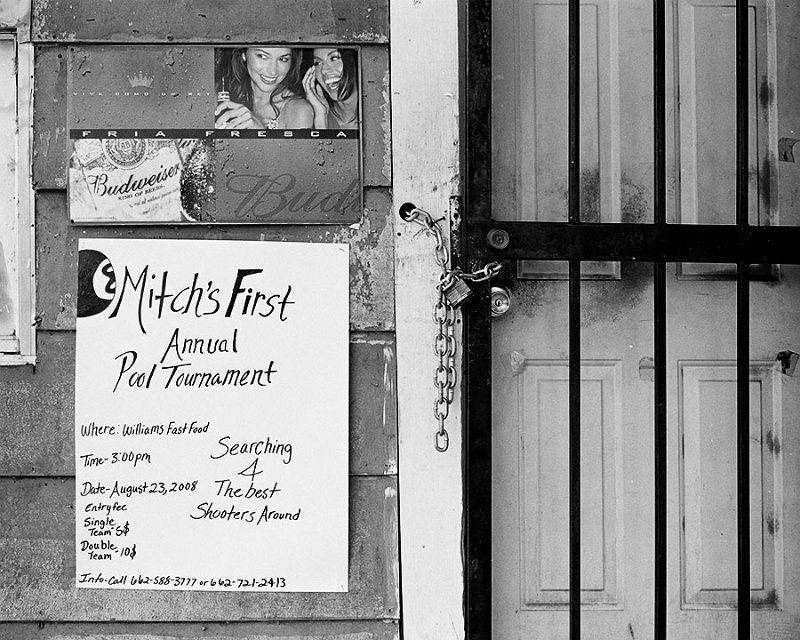 VIVE COMO UN REY
FRIA FRESCA
Budweiser
KING OF BEERS
Budw
8
Mitch's First
Annual
Pool Tournament
Where: Williams Fast Food
Time- 3:00pm
Date- August 23, 2008
Entryfee
Single
Team- 5$
Double
Team- 10$
Searching
4
The best
Shooters Around
Info- Call 662-588-3777 or 662-721-2413